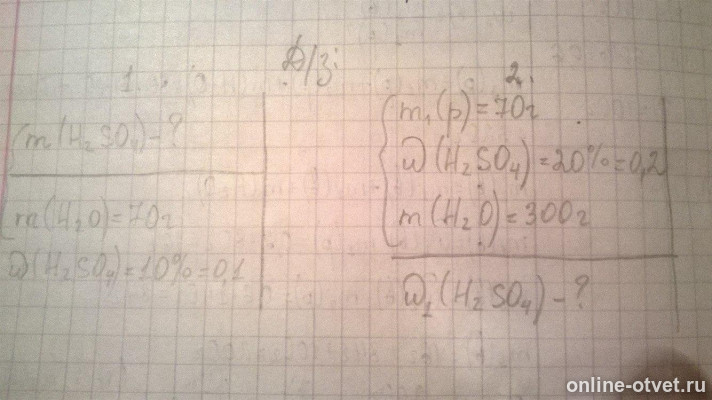 Д/З:
1.
m(H₂SO₄) - ?
m(H₂O) = 70г
ω(H₂SO₄) = 10% = 0,1
2.
m₁(р) = 70г
ω(H₂SO₄) = 20% = 0,2
m(H₂O) = 300г
ω₁(H₂SO₄) - ?
online-otvet.ru